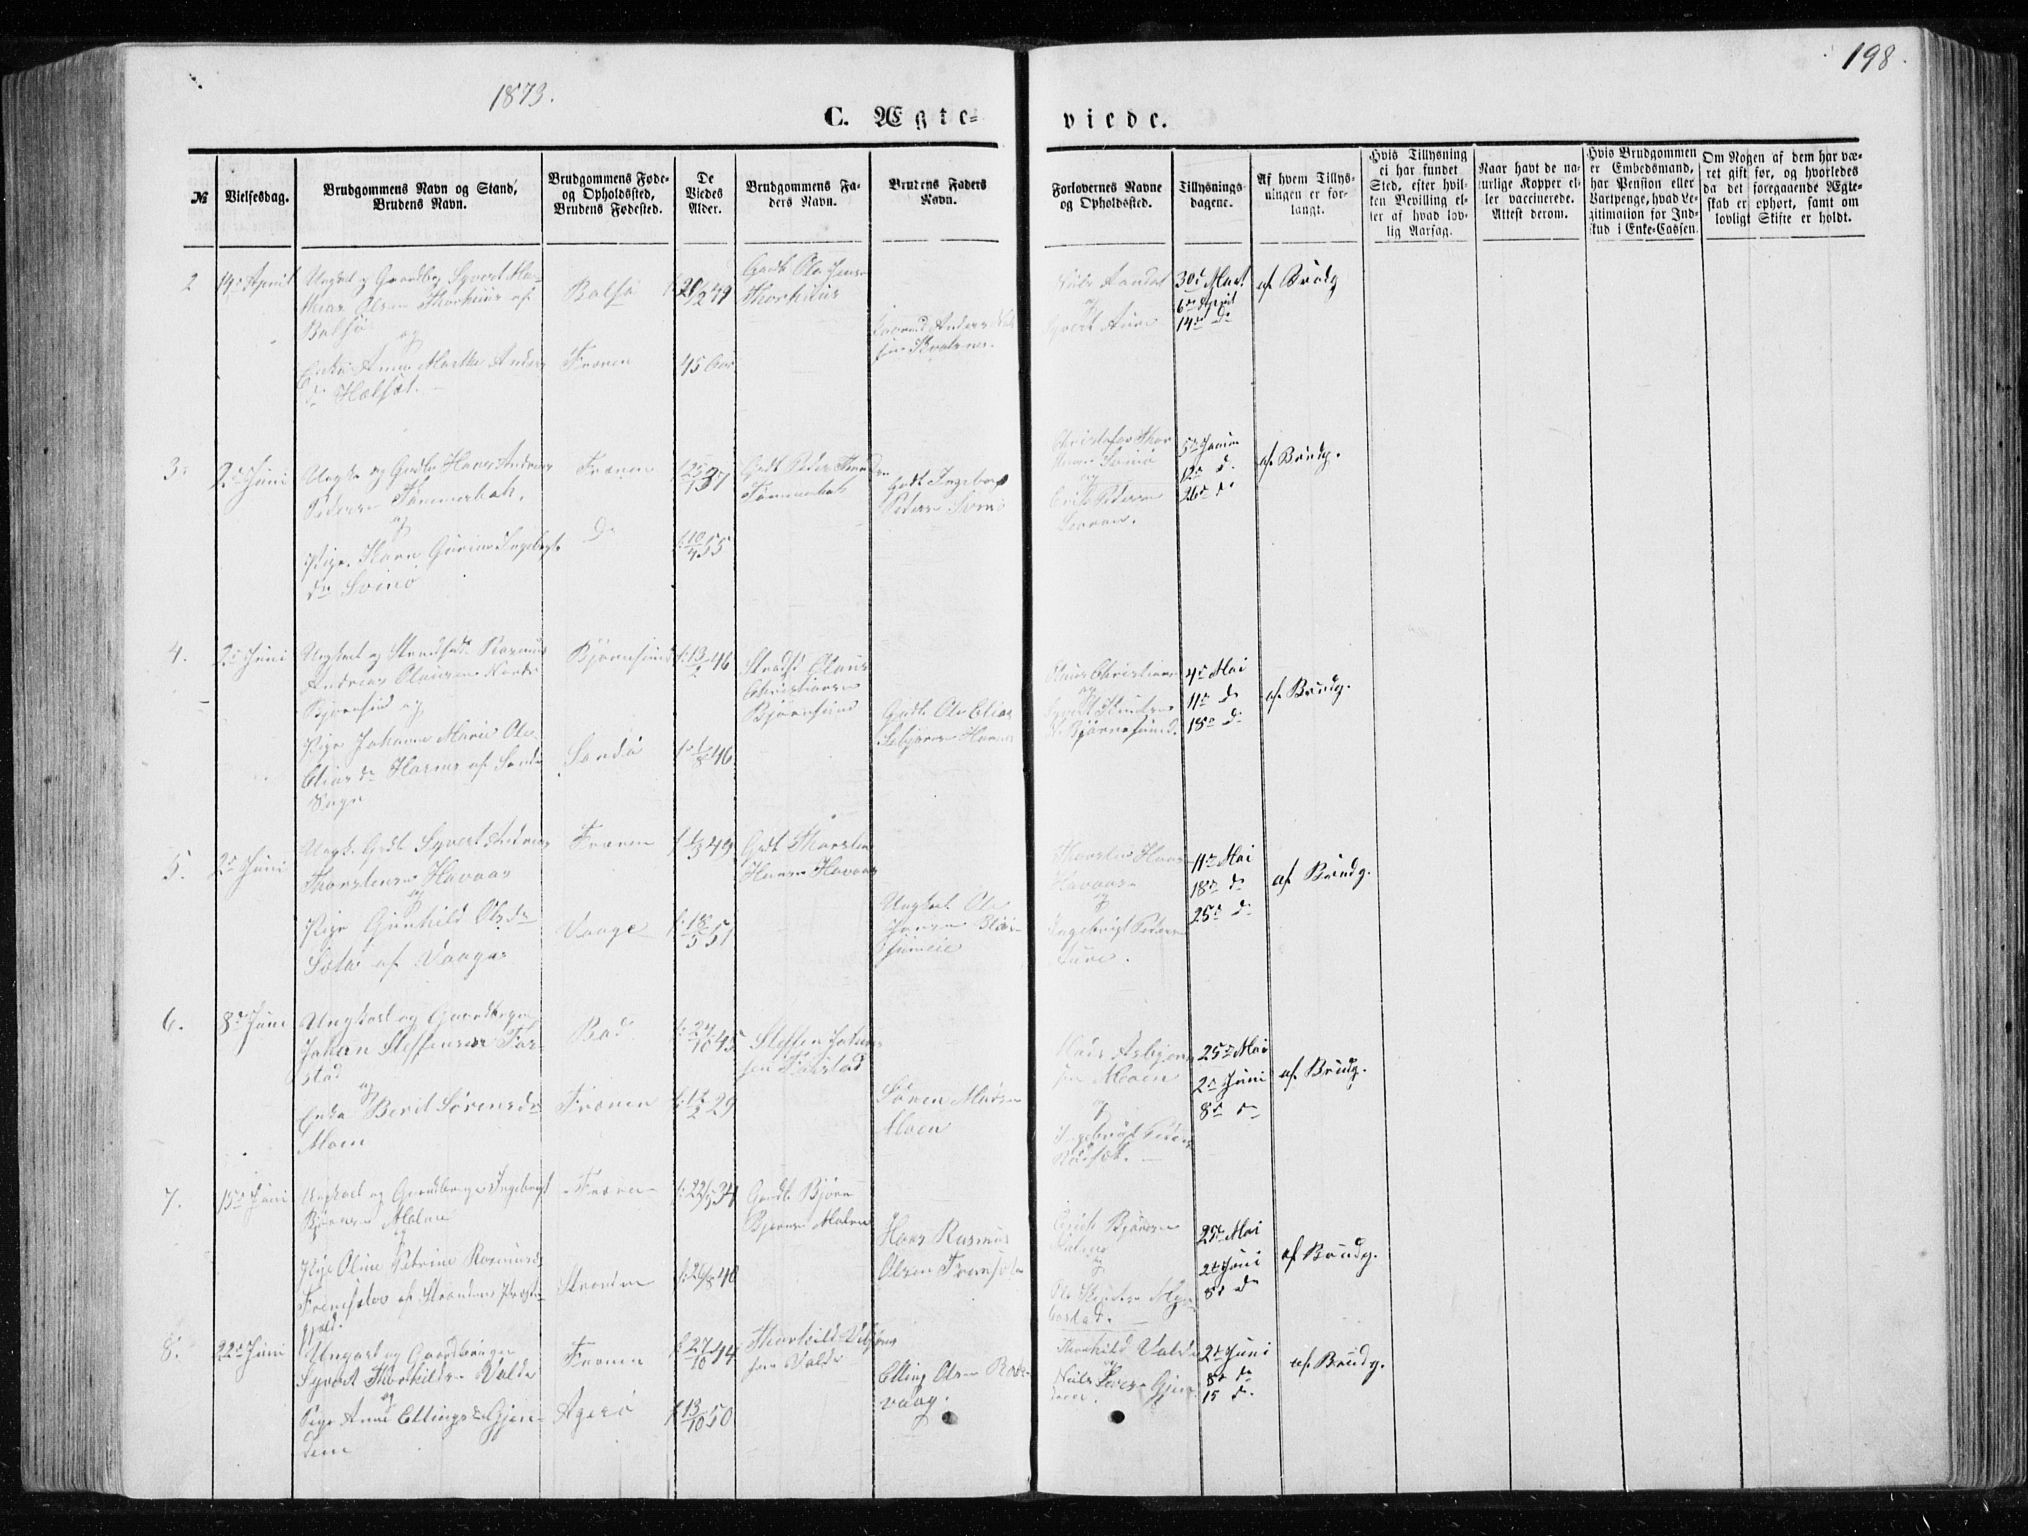 198.
1873.
C. Ægte-
viede.
№
Vielsesdag.
Brudgommens Navn og Stand,
Brudens Navn.
Brudgommens Føde-
og Opholdssted,
Brudens Fødested.
De
Viedes
Alder.
Brudgommens Fa-
ders Navn.
Brudens Faders
Navn.
Forlovernes Navne
og Opholdssted.
Tillysnings-
dagene.
Af hvem Tillys-
ningen er for-
langt.
Hvis Tillysning
ei har fundet
Sted, efter hvil-
ken Bevilling el-
ler af hvad lov-
lig Aarsag.
Naar havt de na-
turlige Kopper el-
ler vaccinerede.
Attest derom.
Hvis Brudgommen
er Embedsmand,
har Pension eller
Vartpenge, hvad Le-
gitimation for Ind-
skud i Enke-Cassen.
Om Nogen af dem har væ-
ret gift før, og hvorledes
da det foregaaende Ægte-
skab er ophørt, samt om
lovligt Skifte er holdt.
2
14de April
Ungkarl og Gaardbr Syvert Ma-
thias Olsen Thorhuus af
Bolsø
og
Enke Anne Marthe Anders
dr Hælsæt.
Bolsø
Frænen
45 Aar
Gaardb Ole Jensen
Thorhuus
Niels Aandal
og
Syvert Aure
30d Mart
6te April
14de do
af Brudg
3.
2d Juni
Ungk. og Gaardb Hans Andreas
Pedersen Tømmerbak.
og
Pige Karn Gurine Ingebrigts
dr Svinø
Frænen
Do
f 25/1 37
f 10/4 55
Tømmerbak
Gaardb Ingebrigt
Pedersen Svinø
Svinø
og
Erik Pedersen
5te Januar
12te d.
26de do
af Brudg.
4.
2d Juni
Ungkarl og Strands. Rasmus
Andreas Olausen Nordre
Bjørnsund og
Pige Johanne Marie Ole
Eliasdr Harnes af Sandø
Sogn
Bjørnsund
Sandø
f 13/2 46
f 1/8 46
Strands Olaus
Christiansen
Bjørnsund
Gaardb Ole Elias
Harnes
Olaus Christiansen
og
Syvert Knudsen
Bjørnsund.
4de Mai
11te do
18de do
af Brudg.
5.
2d Juni
Ungk. Gaardb Syvert Andreas
Thorstensen Havaas
og
Pige Gunhild Olsdr
af Vaage
Frænen
Vaage
f 1/3 49
f 18/5 51
Gaardb Thorsten
Hansen Havaas
Ungkarl Ole
Jensen
Thorsten Hansen
Havaas
og
Ingebrigt Pedersen
Aure.
11te Mai
18de do
25de do
af Brudg.
6.
8de Juni
Ungkarl og Gaardbruger
Johan Steffensen Far-
stad
og
Enke Berit Sørensdr
Moen
Bod
Frænen
f 24/10 45
f 12/2 29
Steffen Johan-
sen Farstad
Søren Madsen
Moen
Mads Asbjørn-
sen Moen
og
Ingebrigt Peders
25de Mai
2d Juni
8de do
af Brudg.
7.
15de Juni
Ungkarl og Gaardbruger Ingebrigt
Bjørnsen Malme
Pige Oline Petrine Rasmusdr
af Strandens Præste-
gjeld.
Frænen
Stranden
f 22/5 34
f 26/8 40
Gaardb Bjørn
Bjørnsen Malme
Hans Rasmus
Olsen
Erik Bjørnsen
Malme
og
Ole Knudsen Myr-
bostad.
25de Mai
2d Juni
8de do
af Brudg.
8.
22de Juni
Ungkarl og Gaardbruger
Syvert Thorkildsen Valde
og
Pige Anne Ellingsdr Gjen-
dem
Frænen
Agerø
f 27/10 44
f 13/10 50
Thorkild
sen Valde
Elling Olsen Bod-
vaag.
Thorkild Valde
og
Niels Gjen-
dem.
2d Juni
8de do
15 do
af Brudg.